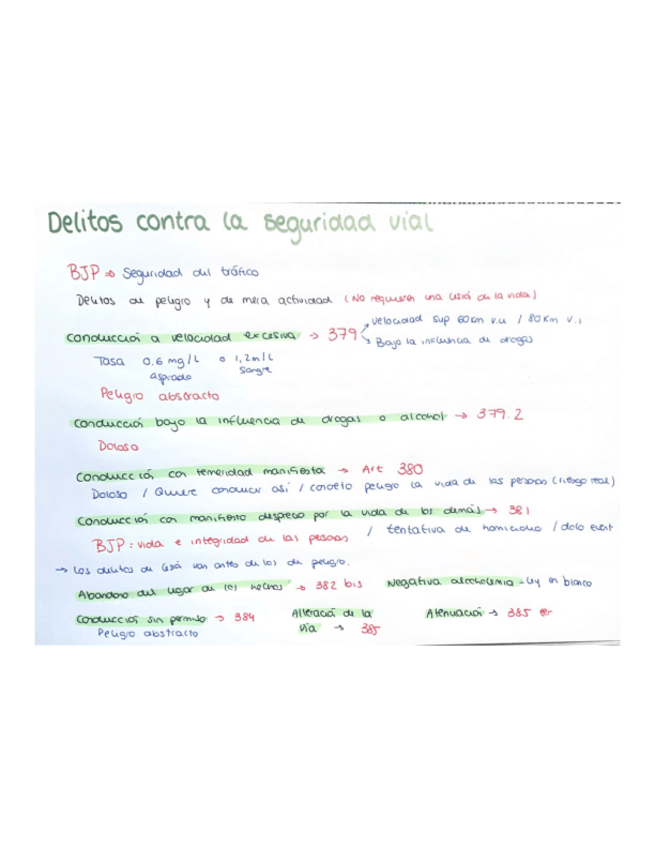 Delitos contra la seguridad vial
BJP → Seguridad del tráfico
Delitos de peligro y de mera actividad (No requieren una lesión de la vida)
Conducción a velocidad excesiva → 379
velocidad sup 60km v.u / 80km v.i
Bajo la influencia de drogas
Tasa 0.6 mg/L o 1,2m/L
aspirado sangre
Peligro abstracto
Conducción bajo la influencia de drogas o alcohol → 379.2
Doloso
Conducción con temeridad manifiesta → Art 380
Doloso / Quiere conducir así / concreto peligro la vida de las personas (riesgo real)
Conducción con manifiesto desprecio por la vida de los demás → 381
BJP: vida e integridad de las personas / tentativa de homicidio / dolo event
→ Los delitos de lesión van antes de los de peligro.
Abandono del lugar de los hechos → 382 bis Negativa alcoholemia - Ly en blanco
Conducción sin permiso → 384
Peligro abstracto
Alteración de la
vía → 385
Atenuación → 385 ter